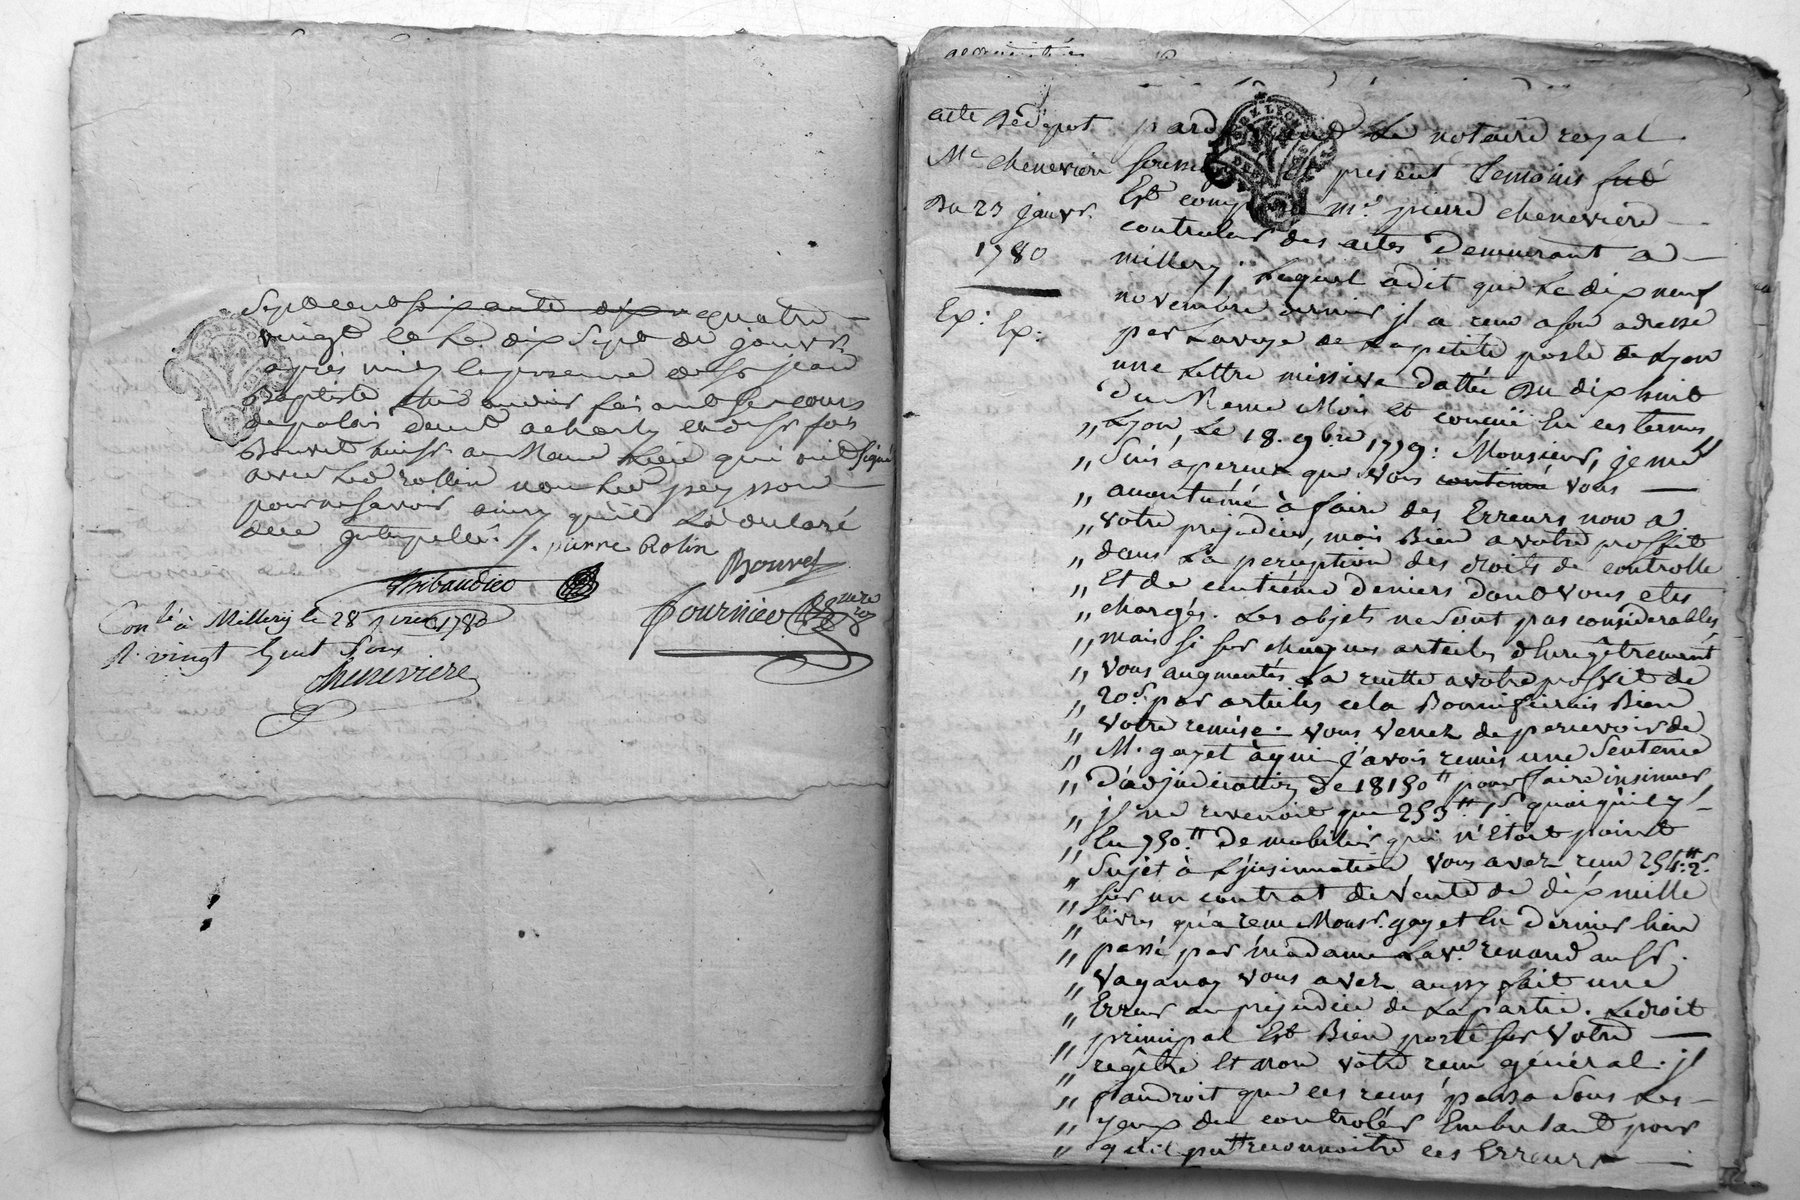 Septcent soixante dix quatre
vingt le Le dix Sept de janvr
après midy en presence de Sr jean
Baptiste
de palais demt a charly et de Sr
Bouvet huissr au meme Lieu qui ont signé
avec Led rollin non Led peysson
pour ne savoir ainsy qu'il La declaré
deue Interpellé ./. pierre Rolin
Bouvet
Thibaudier
Fournier
Conlé à Millery le 28 janvier 1780
R. vingt huit sous
Chenevière
acte De depot
Me Chenevière
Du 23 janvr.
1780
Ex: Ex:
pardevant Le notaire royal
soussigné Et present temoins fut
Est comparu me. pierre chenevière
controleur des actes Demeurant a
millery; Lequel a dit que Le dix neuf
novembre dernier jl a recu a son adresse
par La voye de La petite poste de Lyon
une Lettre missive dattée Du dix huit
du meme Mois Et conçue En ces termes
„ Lyon, Le 18. 9bre 1779: Monsieur, je me
„ suis aperçeu que vous continué vous
„ accoutumé à faire des Erreurs non a
„ votre prejudice, mais Bien a votre proffit
„ dans La perception des droits de controlle
„ Et de centième deniers dont vous etes
„ chargés. Les objets ne sont pas considerables,
„ mais si sur chaques articles d'Enregîtrement
„ vous augmentés La recette a votre proffit de
„ 20s. par articles cela Bonnifierais Bien
„ votre remise. vous venez de percevoir de
„ M. gayet à qui j'avois remis une Sentence
„ D'adjudication de 18150tt pour faire insinuer,
„ jl ne revenoit que 253tt 1s quoiqu'il y
„ En 750tt De mobilier qui n'etoit point
„ Sujet à L'jnsinuation, vous avez recu 254tt 2s
„ sur un contrat de vente de dix mille
„ livres qu'a recu Monsr. gayet En dernier lieu
„ passé par madame La ve. renaud au Sr.
„ vaganay vous avez aussy fait une
„ Erreur au prejudice de La partie. Le droit
„ principal Est Bien porté sur votre
„ regître Et non votre recu général. jl
„ faudroit que ces recus passa sous Les
„ yeux du controleur Embulant pour
„ qu'il put reconnoitre ces Erreurs